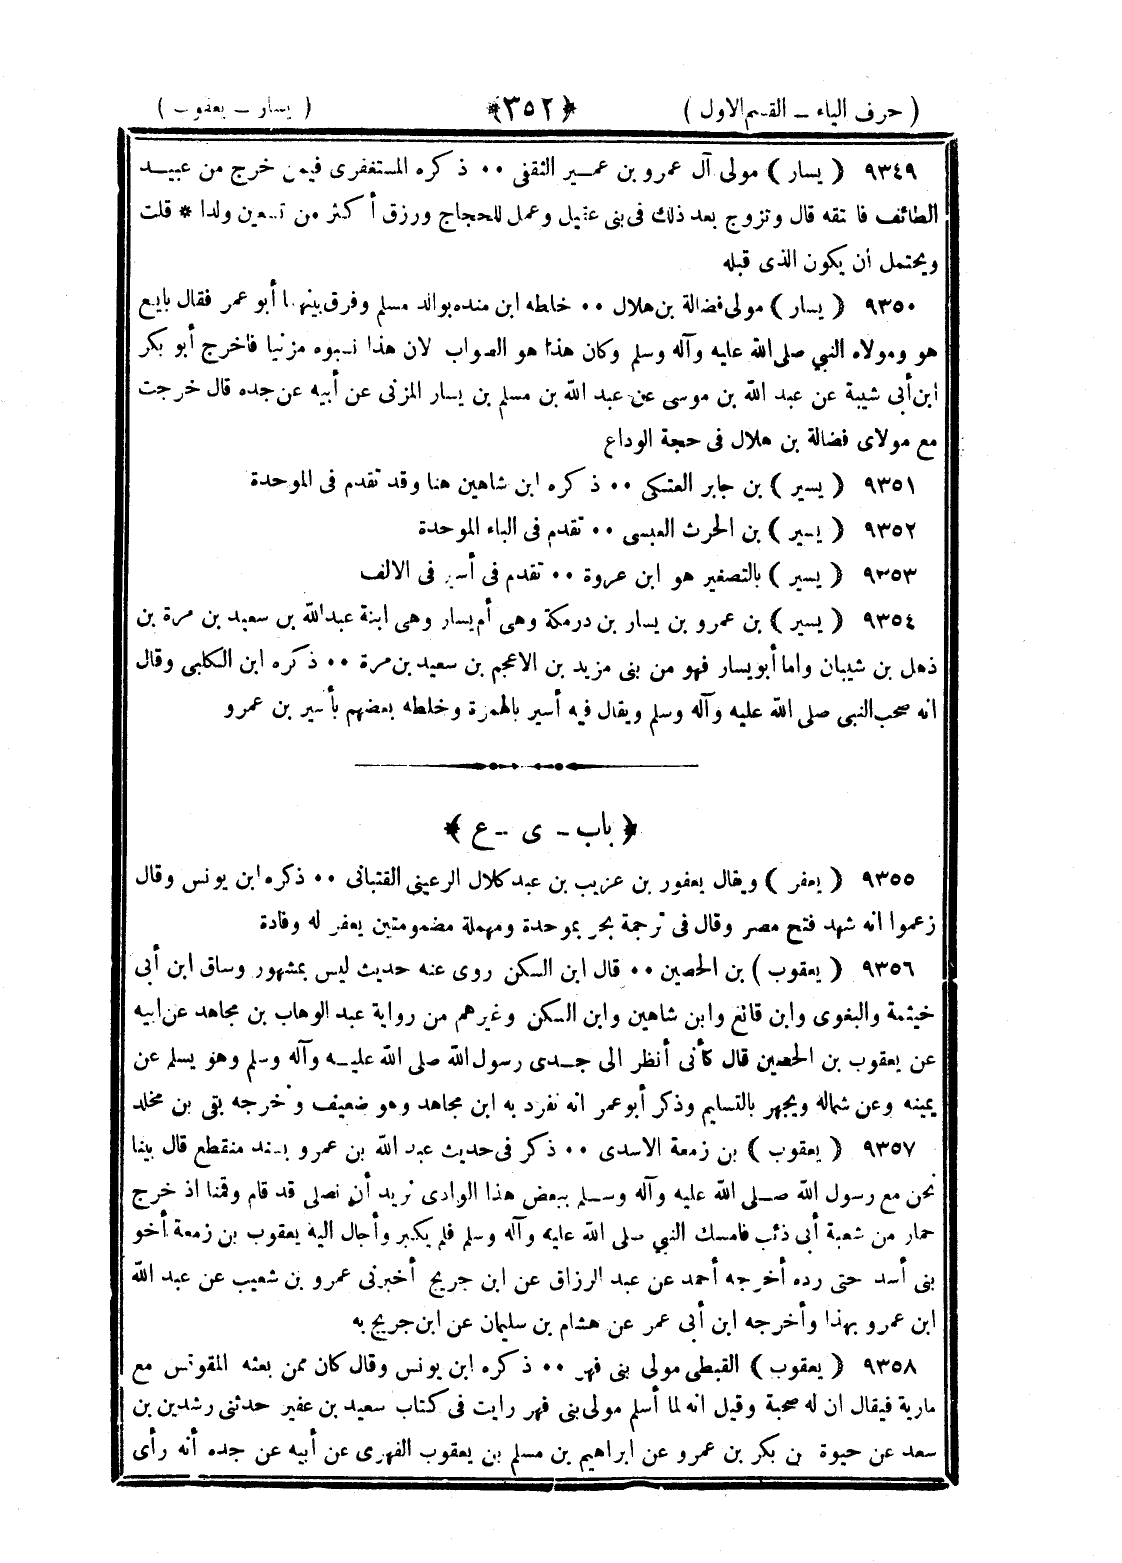 ( حرف الياء – القسم الاول ) ﴿٣٥٢﴾ ( يسار – يعقوب )
٩٣٤٩ ( يسار ) مولى آل عمرو بن عمير الثقفى ٠٠ ذكره المستغفرى فيمن خرج من عبيد
الطائف فاعتقه قال وتزوج بعد ذلك فى بنى عقيل وعمل للحجاج ورزق أكثر من تسعين ولدا * قلت
ويحتمل أن يكون الذى قبله
٩٣٥٠ ( يسار ) مولى فضالة بن هلال ٠٠ خلطه ابن منده بوالد مسلم وفرق بينهما أبو عمر فقال بايع
هو ومولاه النبي صلى الله عليه وآله وسلم وكان هذا هو الصواب لان هذا نسبوه مزنيا فاخرج أبو بكر
ابن أبى شيبة عن عبد الله بن موسى عن عبد الله بن مسلم بن يسار المزنى عن أبيه عن جده قال خرجت
مع مولاى فضالة بن هلال فى حجة الوداع
٩٣٥١ ( يسير ) بن جابر العتكى ٠٠ ذكره ابن شاهين هنا وقد تقدم فى الموحدة
٩٣٥٢ ( يسير ) بن الحرث العبسى ٠٠ تقدم فى الباء الموحدة
٩٣٥٣ ( يسير ) بالتصغير هو ابن عروة ٠٠ تقدم فى أسير فى الالف
٩٣٥٤ ( يسير ) بن عمرو بن يسار بن درمكة وهى أم يسار وهى ابنة عبدالله بن سعيد بن مرة بن
ذهل بن شيبان واما أبو يسار فهو من بنى مزيد بن الاعجم بن سعيد بن مرة ٠٠ ذكره ابن الكلبى وقال
انه صحب النبى صلى الله عليه وآله وسلم ويقال فيه أسير بالهمزة وخلطه بعضهم بأسير بن عمرو
﴿ باب – ى – ع ﴾
٩٣٥٥ ( يعفر ) ويقال يعفور بن عزيب بن عبد كلال الرعينى القتبانى ٠٠ ذكره ابن يونس وقال
زعموا انه شهد فتح مصر وقال فى ترجمة بحر بموحدة ومهملة مضمومتين يعفر له وفادة
٩٣٥٦ ( يعقوب ) بن الحصين ٠٠ قال ابن السكن روى عنه حديث ليس بمشهور وساق ابن أبى
خيثمة والبغوى وابن قانع وابن شاهين وابن السكن وغيرهم من رواية عبد الوهاب بن مجاهد عن ابيه
عن يعقوب بن الحصين قال كأنى أنظر الى جدى رسول الله صلى الله عليه وآله وسلم وهو يسلم عن
يمينه وعن شماله ويجهر بالتسليم وذكر أبو عمر انه تفرد به ابن مجاهد وهو ضعيف وأخرجه بقى بن مخلد
٩٣٥٧ ( يعقوب ) بن زمعة الاسدى ٠٠ ذكر فى حديث عبد الله بن عمرو بسند منقطع قال بينا
نحن مع رسول الله صلى الله عليه وآله وسلم ببعض هذا الوادى نريد أن نصلى قد قام وقمنا اذ خرج
حمار من شعبة أبى ذئب فامسك النبي صلى الله عليه وآله وسلم فلم يكبر وأجال اليه يعقوب بن زمعة أخو
بنى أسد حتى رده أخرجه أحمد عن عبد الرزاق عن ابن جريج أخبرنى عمرو بن شعيب عن عبد الله
ابن عمرو بهذا وأخرجه ابن أبى عمر عن هشام بن سليمان عن ابن جريج به
٩٣٥٨ ( يعقوب ) القبطى مولى بنى فهر ٠٠ ذكره ابن يونس وقال كان ممن بعثه المقوقس مع
مارية فيقال ان له صحبة وقيل انه لما أسلم مولى بنى فهر رايت فى كتاب سعيد بن عفير حدثنى رشدين بن
سعد عن حيوة بن بكر بن عمرو عن ابراهيم بن مسلم بن يعقوب الفهرى عن أبيه عن جده أنه رأى